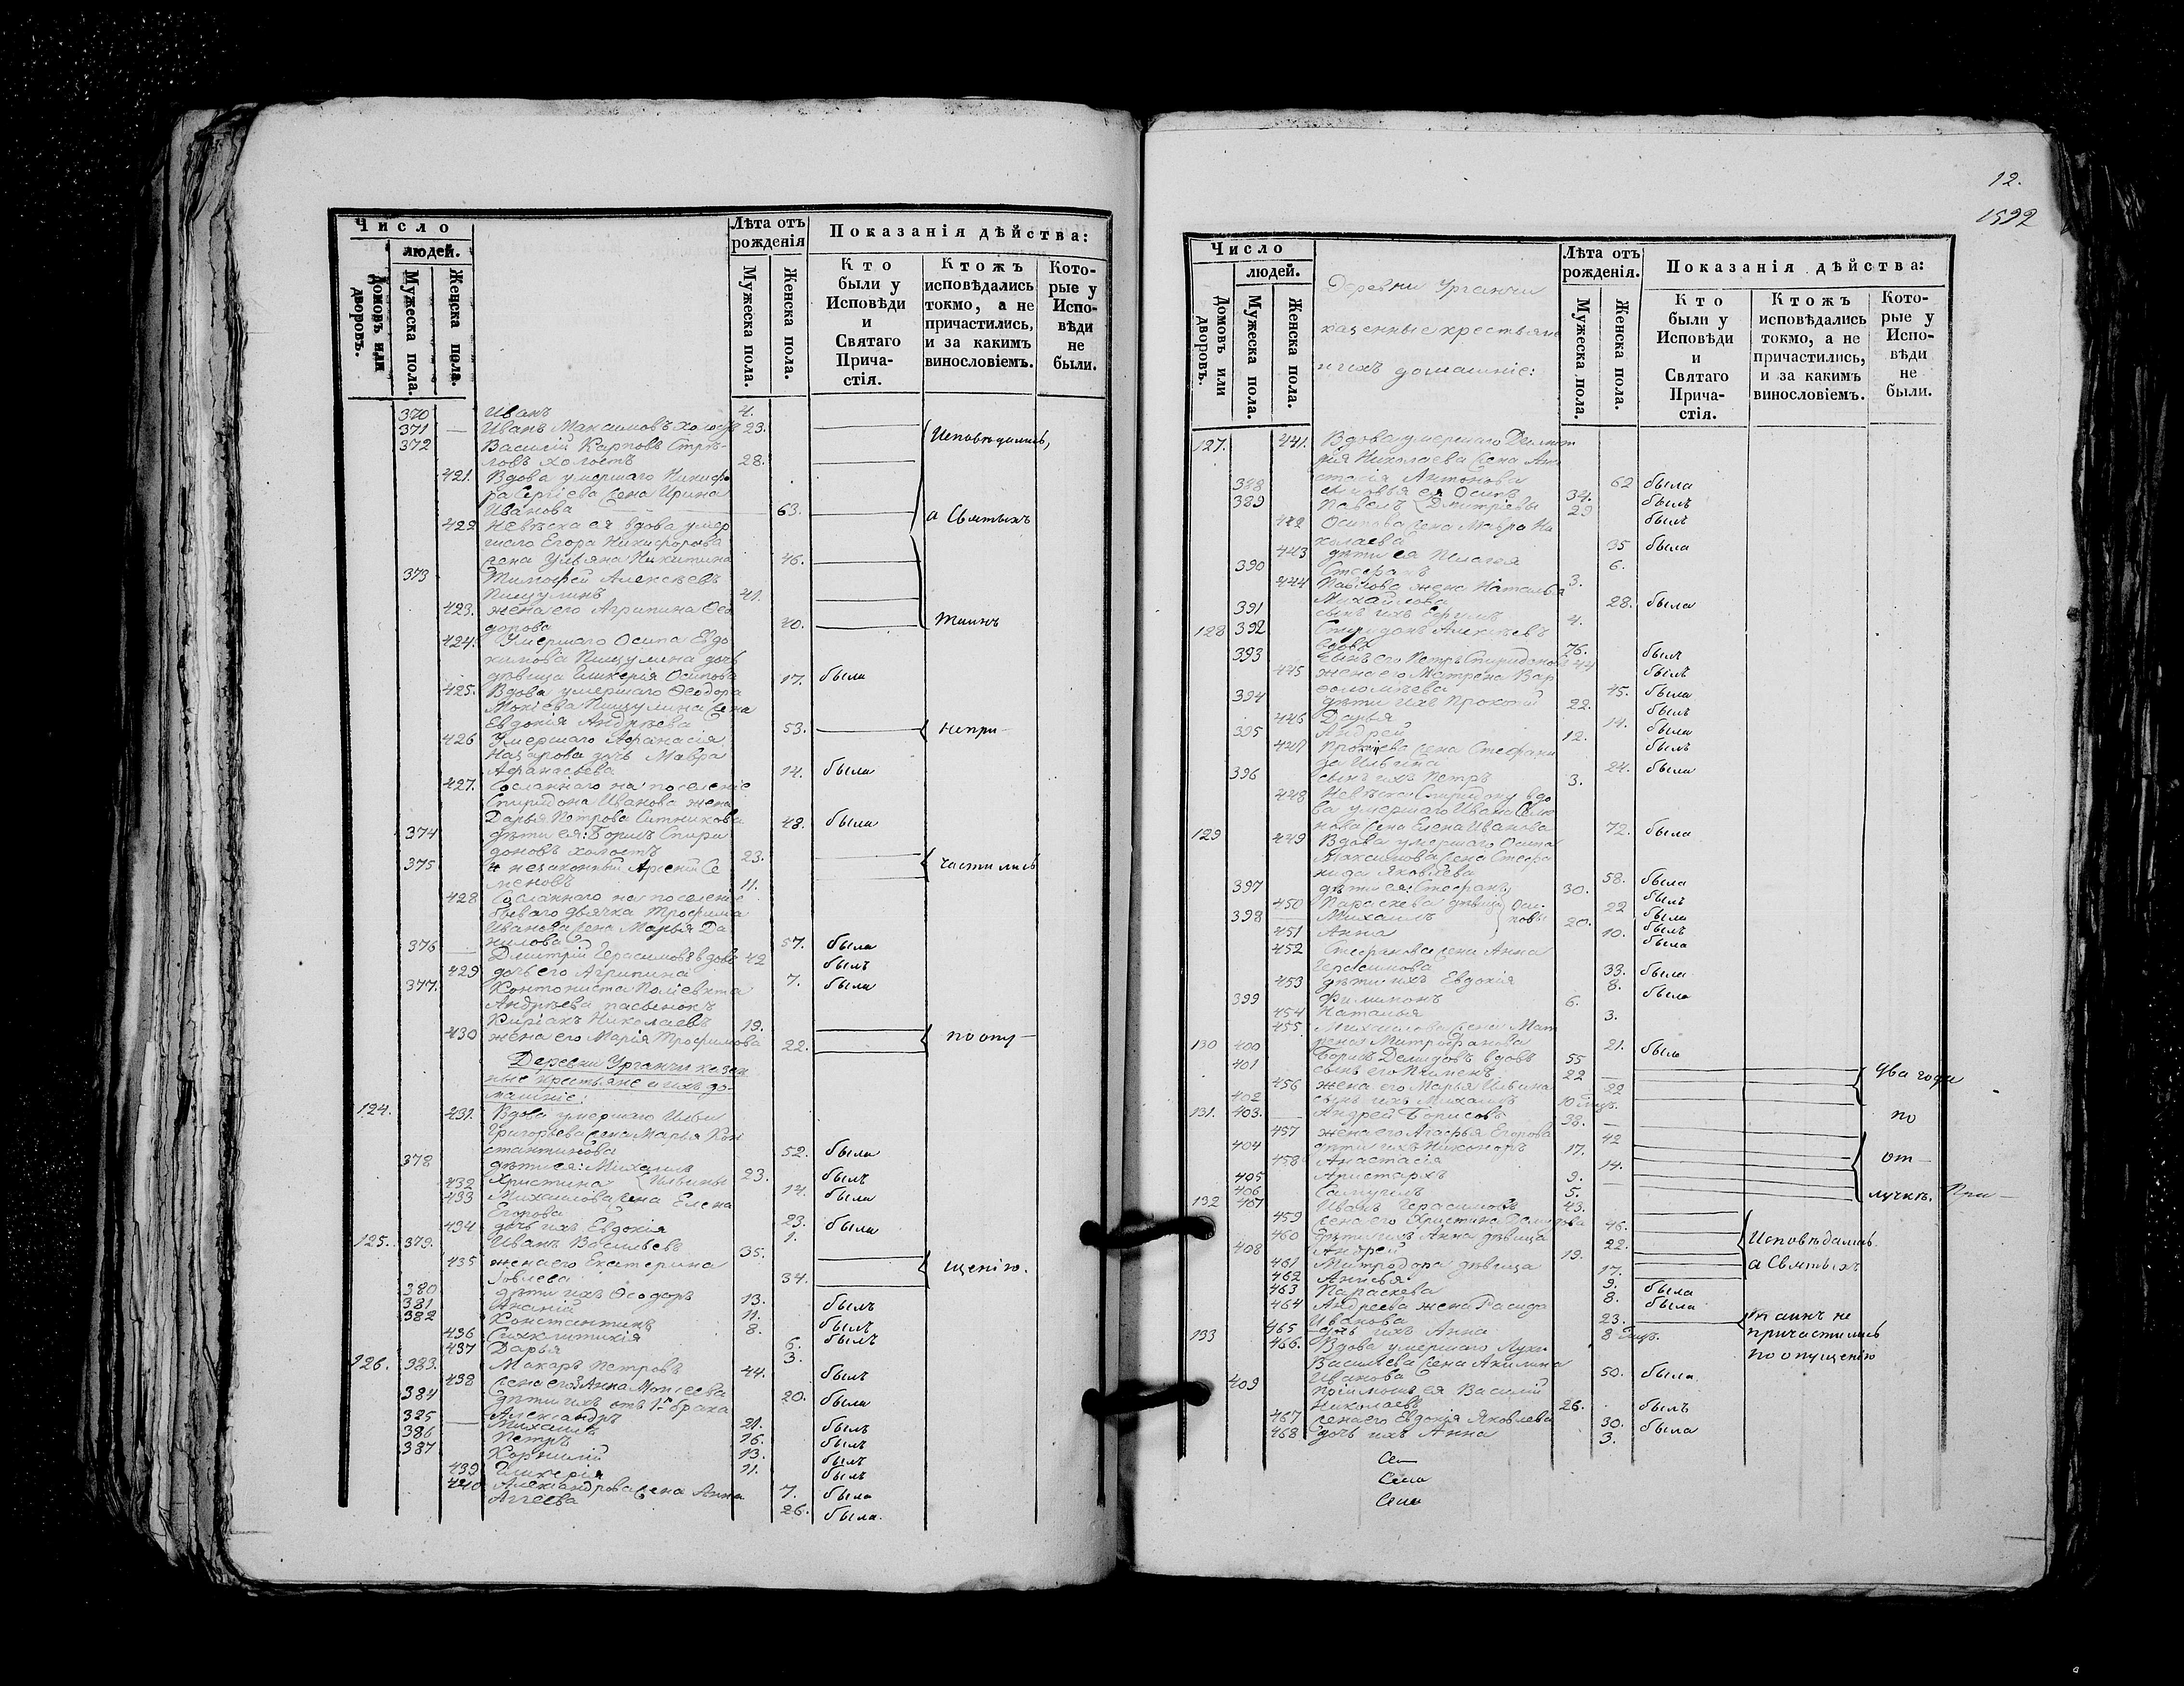 Число
людей.
Домовъ или дворовъ.
Мужеска пола.
Женска пола.
Лѣта отъ рожденія
Мужеска пола.
Женска пола.
Показанія дѣйства:
Кто были у Исповѣди и Святаго Прича-стія.
Ктожъ исповѣдались токмо, а не причастились, и за какимъ винословіемъ.
Кото-рые у Испо-вѣди не были.
370 Иванъ 4.
371 — Иванъ Максимовъ холостъ 23.
Исповѣдались,
372 Василій Карповъ Стрѣ-
ловъ холостъ 28.
421. Вдова умершаго Никифо
ра Сергіева жена Ирина
Иванова 63.
а Святыхъ
422 Невѣстка ея вдова умер
шаго Егора Никифорова
жена Ульяна Никитина 46.
373 Тимофей Алексѣевъ
Пищулинъ 41.
423. жена его Агрипина Ѳео
дорова 40.
Таинъ
424. Умершаго Осипа Евдо
кимова Пищулина дочь
дѣвица Гликерія Осипова 17. была
425. Вдова умершаго Ѳеодора
Мокіева Пищулина жена
Евдокія Андрѣева 53.
непри-
426 Умершаго Афанасія
Назарова дочь Мавра
Афанасьева 14. была
427. Сосланнаго на поселеніе
Спиридона Иванова жена
Дарья Петрова Ситникова 48. была
374 дѣти ея: Борисъ Спири
доновъ холостъ 23.
частились
375 и незаконный Арсеній Се
меновъ 11.
428 Сосланнаго на поселеніе
бывшаго дьячка Трофима
Иванова жена Марья Да
нилова 57. была
376 — Дмитрій Герасимовъ вдовъ 42 былъ
429 дочь его Агрипина 7. была
377. Кантониста Поліевкта
Андрѣева пасынокъ
Киріакъ Николаевъ 19.
430 жена его Марія Трофимова 22.
по опу-
Деревни Урганчи казен
ные крестьяне и ихъ до-
машніе:
124. 431. Вдова умершаго Ильи
Григорьева жена Марья Кон
стантинова 52. была
378 дѣти ея: Михаилъ 23. былъ
432 Христина Ильины 14. была
433 Михаилова жена Елена
Егорова 23. была
434 дочь ихъ Евдокія 1.
125. 379. Иванъ Васильевъ 35.
435 жена его Екатерина
Іовлева 34.
щенію.
380 дѣти ихъ Ѳеодоръ 13. былъ
381 Ананій 11. былъ
382 Константинъ 8. былъ
436 Синклитикія 6.
437 Дарья 3.
126. 383. Макаръ Петровъ 44. былъ
438 жена его Анна Моисеева 20. была
дѣти ихъ отъ 1го брака
384 Александръ 21. былъ
385 — Михаилъ 16. былъ
386 Петръ 13. былъ
387 Корнилій 11. былъ
439 Гликерія 7. была
440 Александрова жена Анна
Агеева 26. была.
12.
1592
Число
людей.
Домовъ или дворовъ.
Мужеска пола.
Женска пола.
Деревни Урганчи
казенные крестьяне
и ихъ домашніе:
Лѣта отъ рожденія.
Мужеска пола.
Женска пола.
Показанія дѣйства:
Кто были у Исповѣди и Святаго Прича-стія.
Ктожъ исповѣдались токмо, а не причастились, и за какимъ винословіемъ.
Кото-рые у Испо-вѣди не были.
127. 441. Вдова умершаго Димит
рія Николаева жена Ана
стасія Антонова 62 была
388 сыновья ея Осипъ 34. былъ
389 Павелъ Дмитріевы 29 былъ
442 Осипова жена Мавра Ни
колаева 35 была
443 дѣти ея Пелагея 6.
390 Стефанъ 3.
444 Павлова жена Наталья
Михайлова 28. была
391 сынъ ихъ Ефимъ 4.
128 392 Спиридонъ Алексѣевъ
вдовъ 76. былъ
393 сынъ его Петръ Спиридоновъ 44 былъ
445 жена его Матрена Вар
ѳоломѣева 45. была
394 дѣти ихъ Прокопій 22. былъ
446 Дарья 14. была
395 Андрей 12. былъ
447 Прокопіева жена Стефани
да Ильина 24. была
396 сынъ ихъ Петръ 3.
448 Невѣстка Спиридону вдо
ва умершаго Ивана Семе
нова жена Елена Иванова 72. была
129 449 Вдова умершаго Осипа
Максимова жена Стефа
нида Яковлева 58. была
397 дѣти ея: Стефанъ 30. былъ
450 Параскева дѣвица Оси- 22 была
398 — Михаилъ повы 20. былъ
451 Анна 10. была
452 Стефанова жена Анна
Герасимова 33. была
453 дѣти ихъ Евдокія 8. была
399 Филимонъ 6.
454 Наталья 3.
455 Михаилова жена Мат
рена Митрофанова 21. была
130 400 Борисъ Демидовъ вдовъ 55
два года
401 сынъ его Пименъ 22
456 жена его Марья Ильина 22
402 сынъ ихъ Михаилъ 10 мѣц.
по
131. 403. Андрей Борисовъ 38.
457 жена его Агафья Егорова 42
404 дѣти ихъ Никоноръ 17.
от-
458 Анастасія 14.
405 Аристархъ 9.
406 Самуилъ 5.
лучкѣ. При-
132 407 Иванъ Герасимовъ 43.
459 жена его Христина Демидова 46.
460 дѣти ихъ Анна дѣвица 22.
Исповѣдались
408 Андрей 19.
461 Митродора дѣвица 17.
а Святыхъ
462 Анисья 9. была
463 Параскева 8. была
464 Андреева жена Раиса
Иванова 23.
Таинъ не
465 дочь ихъ Анна 8 мѣц.
причастились
133 466. Вдова умершаго Луки
по опущенію
Васильева жена Акилина
Иванова 50. была
409 Пріимышъ ея Василій
Николаевъ 26. былъ
467 жена его Евдокія Яковлева 30. была
468 дочь ихъ Анна 3.